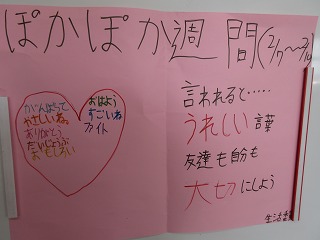 ぽかぽか週間(2/7〜2/
がんばって
やさしいね。
ありがとう
だいじょうぶ
おもしろい
おはよう
すごいね
ファイト
言われると・・・・・
うれしい言葉
友達も自分も
大切にしよう
生活委